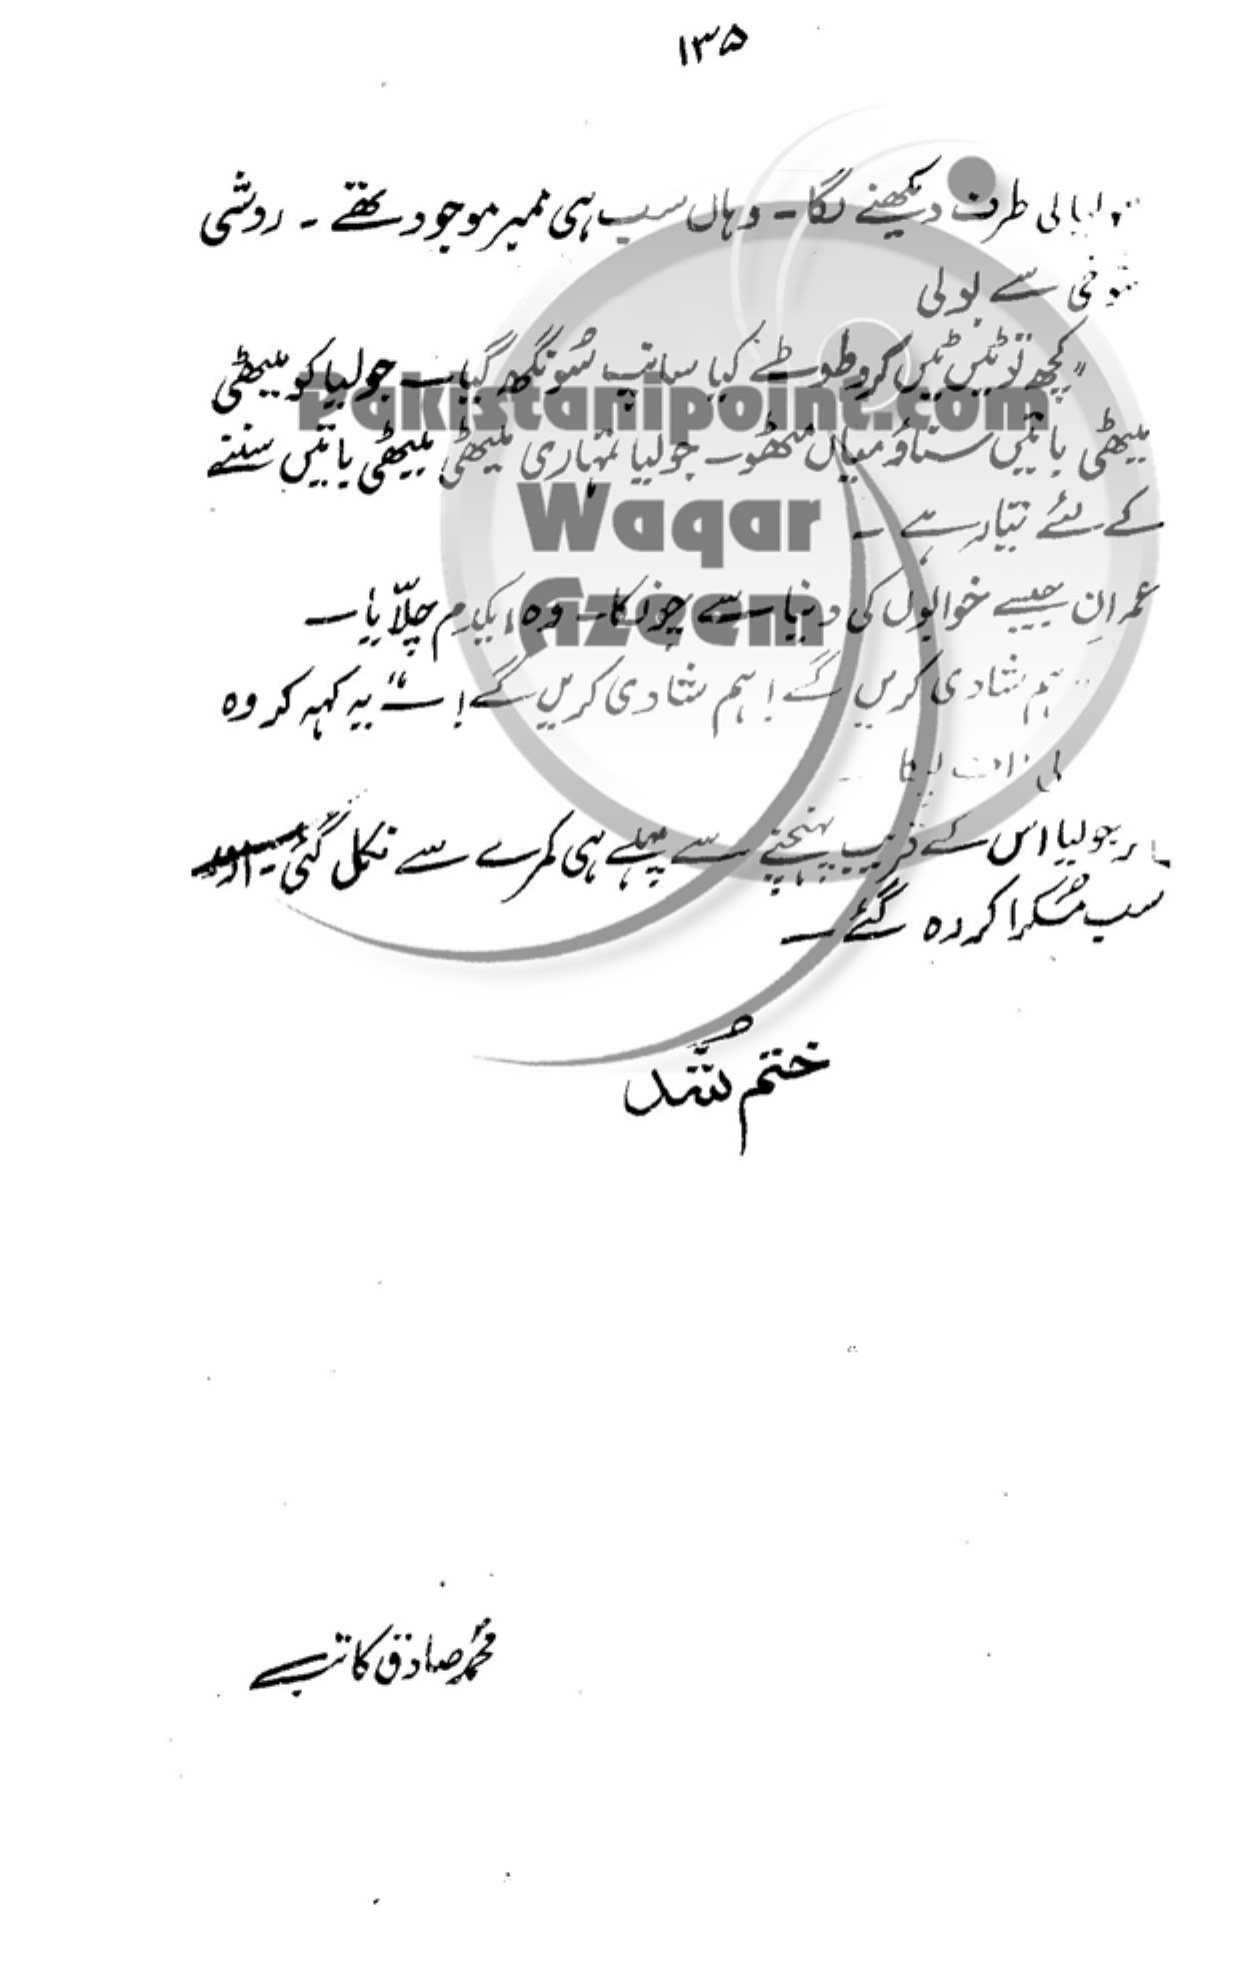 ۱۳۵
طرف دیکھنے لگا۔ وہاں سب ہی ممبر موجود تھے۔ روشی
شوخی سے بولی
"کچھ تو ٹیں ٹیں کرو طوطے کیا سانپ سونگھ گیا۔ جولیا کو میٹھی
میٹھی باتیں سناؤ میاں مٹھو۔ جولیا تمہاری میٹھی میٹھی باتیں سننے
کے لئے تیار ہے۔
عمران جیسے خوابوں کی دنیا سے چونکا۔ وہ ایکدم چلّایا۔
ہم شادی کریں گے! ہم شادی کریں گے! ۔" یہ کہہ کر وہ
لپکا
جولیا اس کے قریب پہنچنے سے پہلے ہی کمرے سے نکل گئی۔ اور
سب مسکرا کر رہ گئے۔
ختم شُد
محمد صادق کاتب
Pakistanipoint.com
Waqar
Azeem